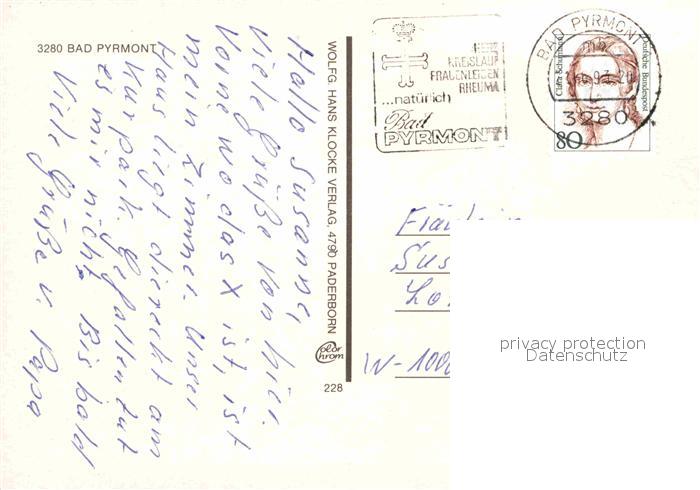 3280 BAD PYRMONT
Hallo Susanne,
Viele Grüße von hier.
Vorne wo das X ist, ist
mein Zimmer. Unser
Haus liegt direckt am
Kurpark. Gefallen tut
es mir nicht. Bis bald
Viele Grüße v. Papa
WOLFG. HANS KLOCKE VERLAG, 4790 PADERBORN
color
chrom
228
HERZ
KREISLAUF
FRAUENLEIDEN
RHEUMA
...natürlich
Bad
PYRMONT
BAD PYRMONT
3280
Clara Schumann
Deutsche Bundespost
80
Fräulein
Sus
W-1000
privacy protection
Datenschutz